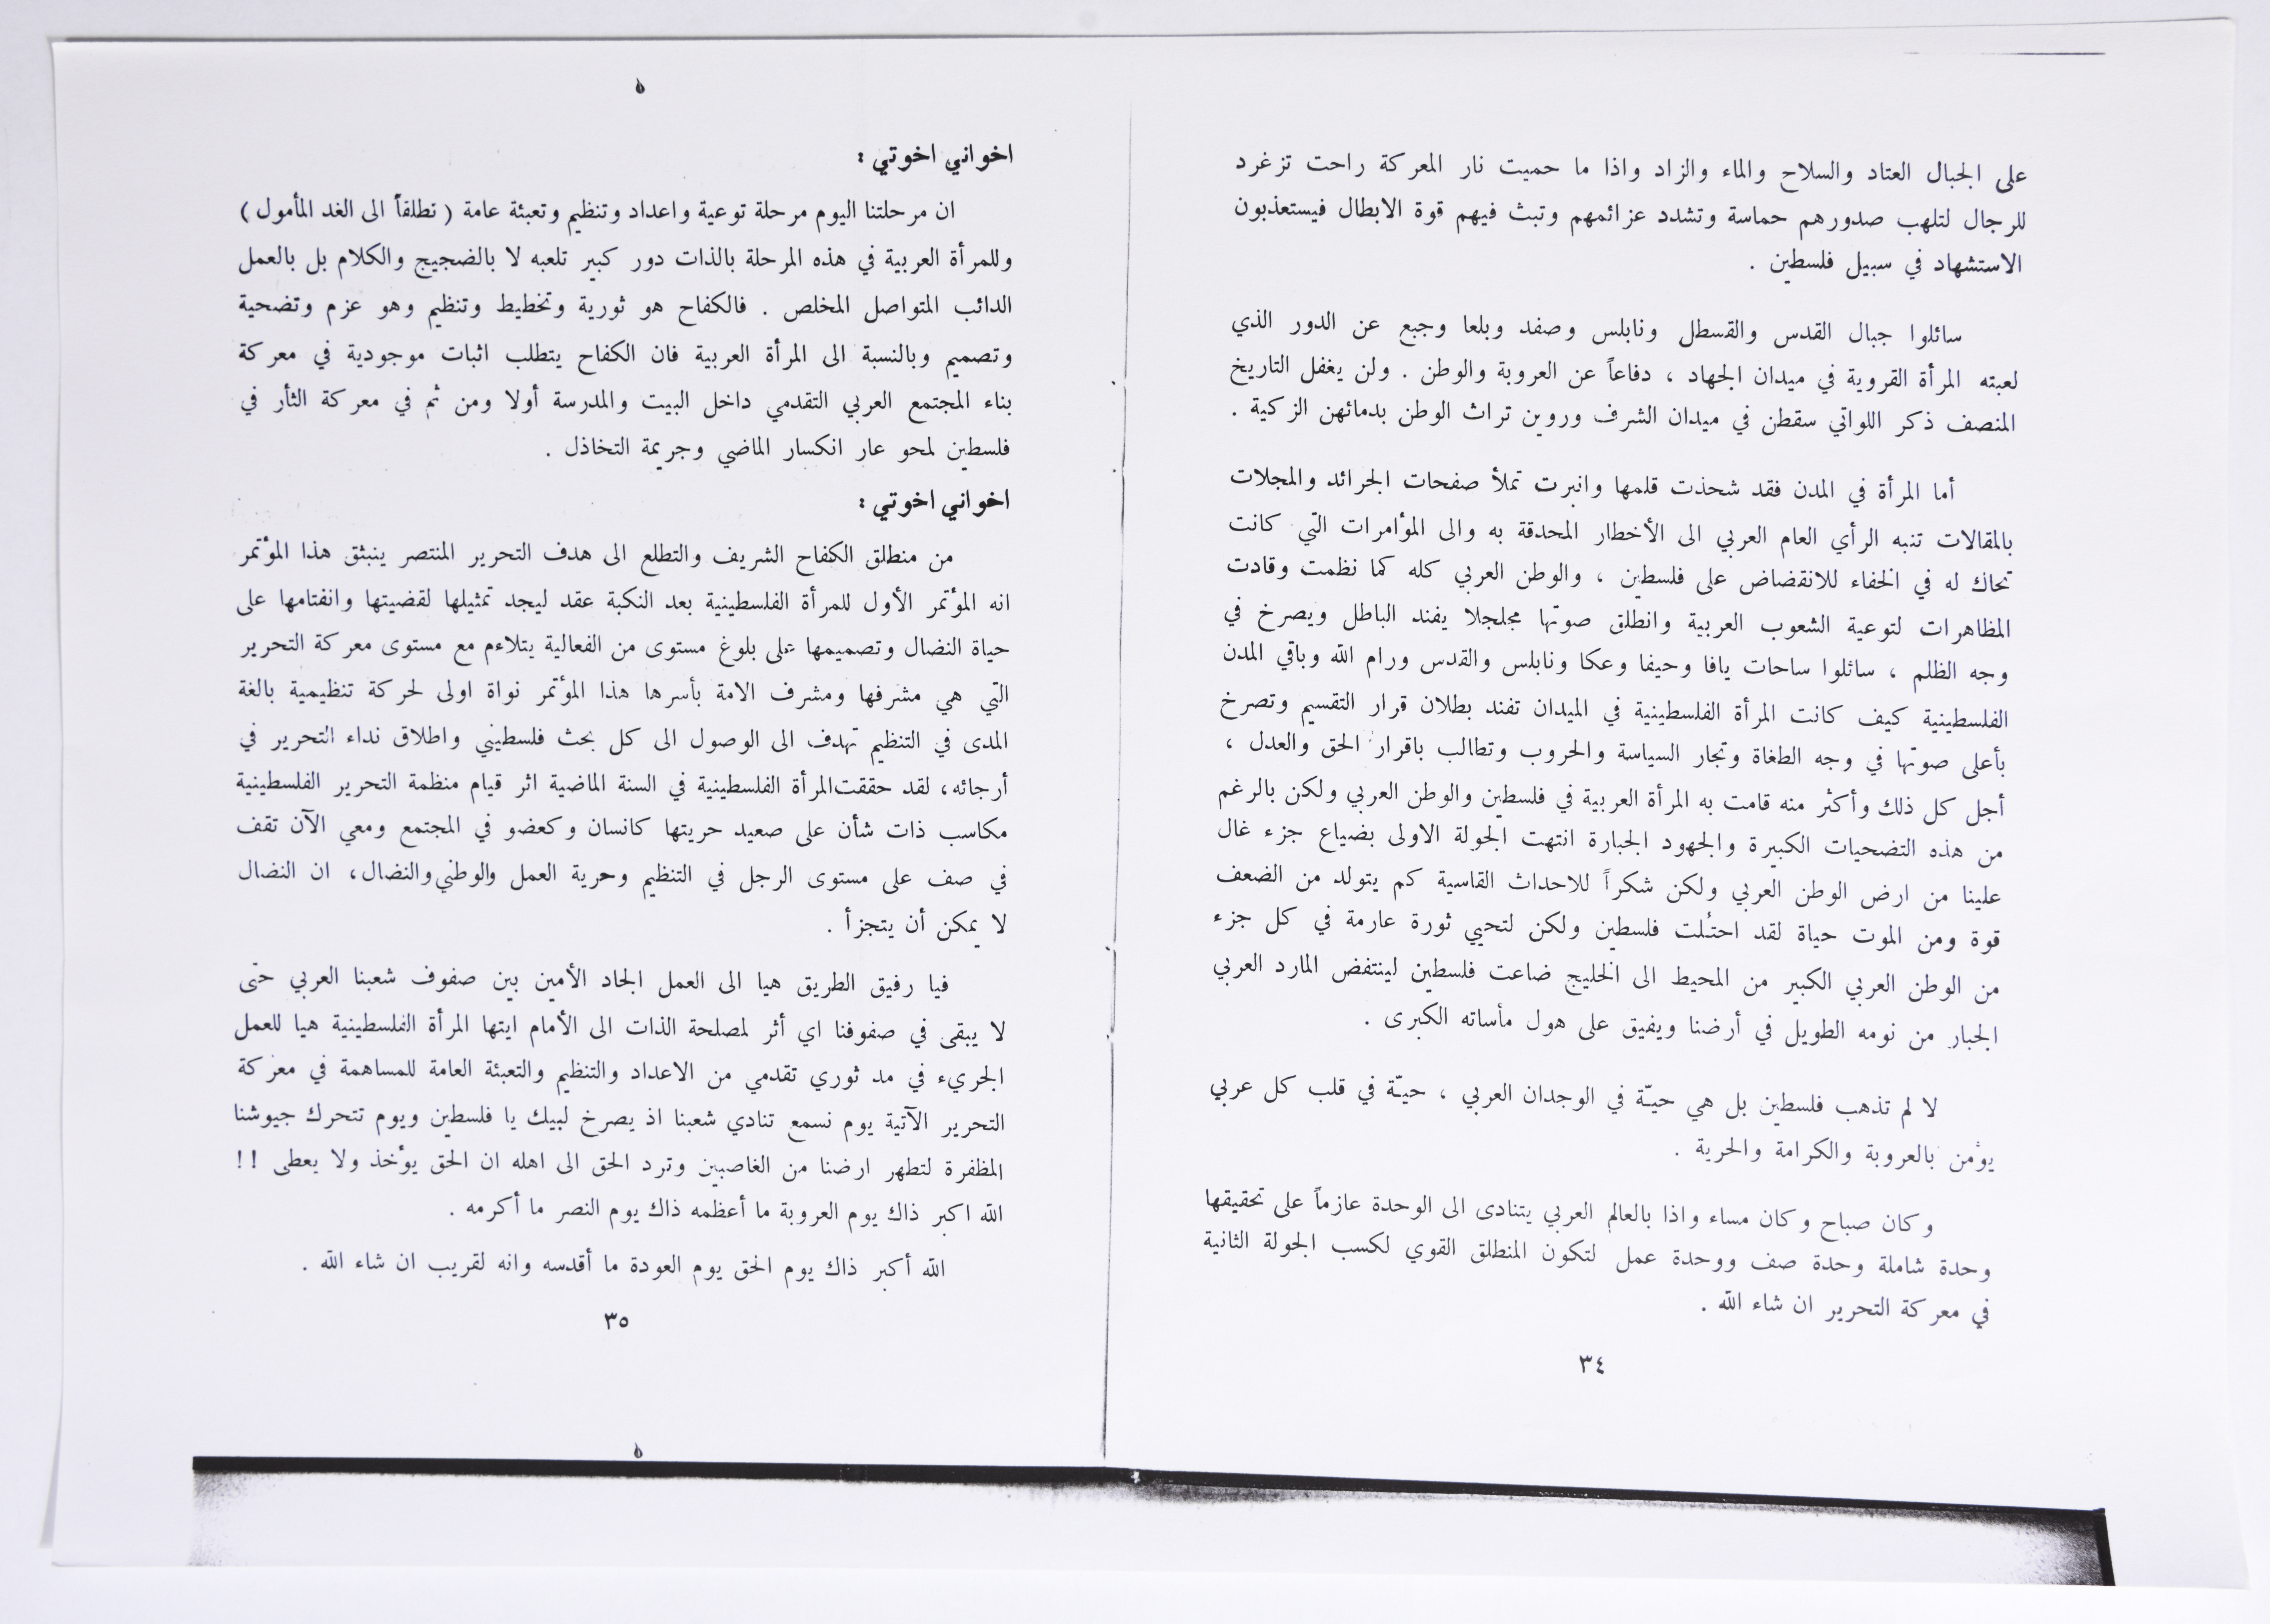 على الجبال العتاد والسلاح والماء والزاد واذا ما حميت نار المعركة راحت تزغرد
للرجال لتلهب صدورهم حماسة وتشدد عزائمهم وتبث فيهم قوة الابطال فيستعذبون
الاستشهاد في سبيل فلسطين .
سائلوا جبال القدس والقسطل ونابلس وصفد وبلعا وجبع عن الدور الذي
لعبته المرأة القروية في ميدان الجهاد ، دفاعاً عن العروبة والوطن . ولن يغفل التاريخ
المنصف ذكر اللواتي سقطن في ميدان الشرف وروين تراث الوطن بدمائهن الزكية .
أما المرأة في المدن فقد شحذت قلمها وانبرت تملأ صفحات الجرائد والمجلات
بالمقالات تنبه الرأي العام العربي الى الأخطار المحدقة به والى المؤامرات التي كانت
تحاك له في الخفاء للانقضاض على فلسطين ، والوطن العربي كله كما نظمت وقادت
المظاهرات لتوعية الشعوب العربية وانطلق صوتها مجلجلا يفند الباطل ويصرخ في
وجه الظلم ، سائلوا ساحات يافا وحيفا وعكا ونابلس والقدس ورام الله وباقي المدن
الفلسطينية كيف كانت المرأة الفلسطينية في الميدان تفند بطلان قرار التقسيم وتصرخ
بأعلى صوتها في وجه الطغاة وتجار السياسة والحروب وتطالب باقرار الحق والعدل ،
أجل كل ذلك وأكثر منه قامت به المرأة العربية في فلسطين والوطن العربي ولكن بالرغم
من هذه التضحيات الكبيرة والجهود الجبارة انتهت الجولة الاولى بضياع جزء غال
علينا من ارض الوطن العربي ولكن شكراً للاحداث القاسية كم يتولد من الضعف
قوة ومن الموت حياة لقد احتُلت فلسطين ولكن لتحيي ثورة عارمة في كل جزء
من الوطن العربي الكبير من المحيط الى الخليج ضاعت فلسطين لينتفض المارد العربي
الجبار من نومه الطويل في أرضنا ويفيق على هول مأساته الكبرى .
لا لم تذهب فلسطين بل هي حيّة في الوجدان العربي ، حيّة في قلب كل عربي
يؤمن بالعروبة والكرامة والحرية .
وكان صباح وكان مساء واذا بالعالم العربي يتنادى الى الوحدة عازماً على تحقيقها
وحدة شاملة وحدة صف ووحدة عمل لتكون المنطلق القوي لكسب الجولة الثانية
في معركة التحرير ان شاء الله .
٣٤
اخواني اخوتي :
ان مرحلتنا اليوم مرحلة توعية واعداد وتنظيم وتعبئة عامة ( تطلقاً الى الغد المأمول )
وللمرأة العربية في هذه المرحلة بالذات دور كبير تلعبه لا بالضجيج والكلام بل بالعمل
الدائب المتواصل المخلص . فالكفاح هو ثورية وتخطيط وتنظيم وهو عزم وتضحية
وتصميم وبالنسبة الى المرأة العربية فان الكفاح يتطلب اثبات موجودية في معركة
بناء المجتمع العربي التقدمي داخل البيت والمدرسة أولا ومن ثم في معركة الثأر في
فلسطين لمحو عار انكسار الماضي وجريمة التخاذل .
اخواني اخوتي :
من منطلق الكفاح الشريف والتطلع الى هدف التحرير المنتصر ينبثق هذا المؤتمر
انه المؤتمر الأول للمرأة الفلسطينية بعد النكبة عقد ليجد تمثيلها لقضيتها وانفتامها على
حياة النضال وتصميمها على بلوغ مستوى من الفعالية يتلاءم مع مستوى معركة التحرير
التي هي مشرفها ومشرف الامة بأسرها هذا المؤتمر نواة اولى لحركة تنظيمية بالغة
المدى في التنظيم تهدف الى الوصول الى كل بحث فلسطيني واطلاق نداء التحرير في
أرجائه، لقد حققت المرأة الفلسطينية في السنة الماضية اثر قيام منظمة التحرير الفلسطينية
مكاسب ذات شأن على صعيد حريتها كانسان وكعضو في المجتمع ومعي الآن تقف
في صف على مستوى الرجل في التنظيم وحرية العمل والوطني والنضال، ان النضال
لا يمكن أن يتجزأ .
فيا رفيق الطريق هيا الى العمل الجاد الأمين بين صفوف شعبنا العربي حتى
لا يبقى في صفوفنا اي أثر لمصلحة الذات الى الأمام ايتها المرأة الفلسطينية هيا للعمل
الجريء في مد ثوري تقدمي من الاعداد والتنظيم والتعبئة العامة للمساهمة في معركة
التحرير الآتية يوم نسمع تنادي شعبنا اذ يصرخ لبيك يا فلسطين ويوم تتحرك جيوشنا
المظفرة لتطهر ارضنا من الغاصبين وترد الحق الى اهله ان الحق يؤخذ ولا يعطى !!
الله اكبر ذاك يوم العروبة ما أعظمه ذاك يوم النصر ما أكرمه .
الله أكبر ذاك يوم الحق يوم العودة ما أقدسه وانه لقريب ان شاء الله .
٣٥